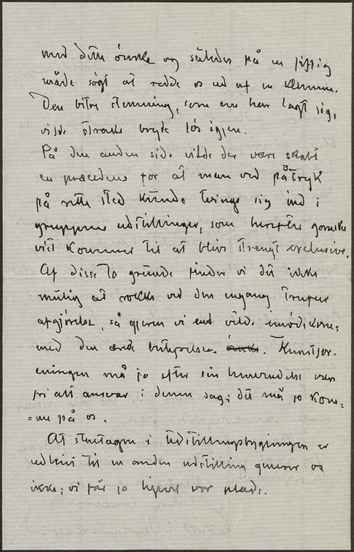 med dette ønske og således på en
måde søgt at redde os ud af en klemme.
Den bitre stemning, som nu har lagt sig,
vilde straks bryde løs igjen.
På den anden side vilde der være skabt
en præcedens for at man ved påtryk
på rette sted kunde tvinge sig ind i
gruppens udstillinger, som herefter ganske
vist kommer til at blive strengt exclusive.
Af disse to grunde finder vi det ikke
muligt at rokke ved den engang trufne
afgjørelse, så gjerne vi end vilde imødekom-
med den
eningen må jo efter sin henvendelse være
fri alt ansvar i denne sag; det må jo kom-
me på os.
At etagen i Udstillingsbygningen er
udleiet til en anden udstilling generer os
ikke; vi får jo ligevel vor plads.